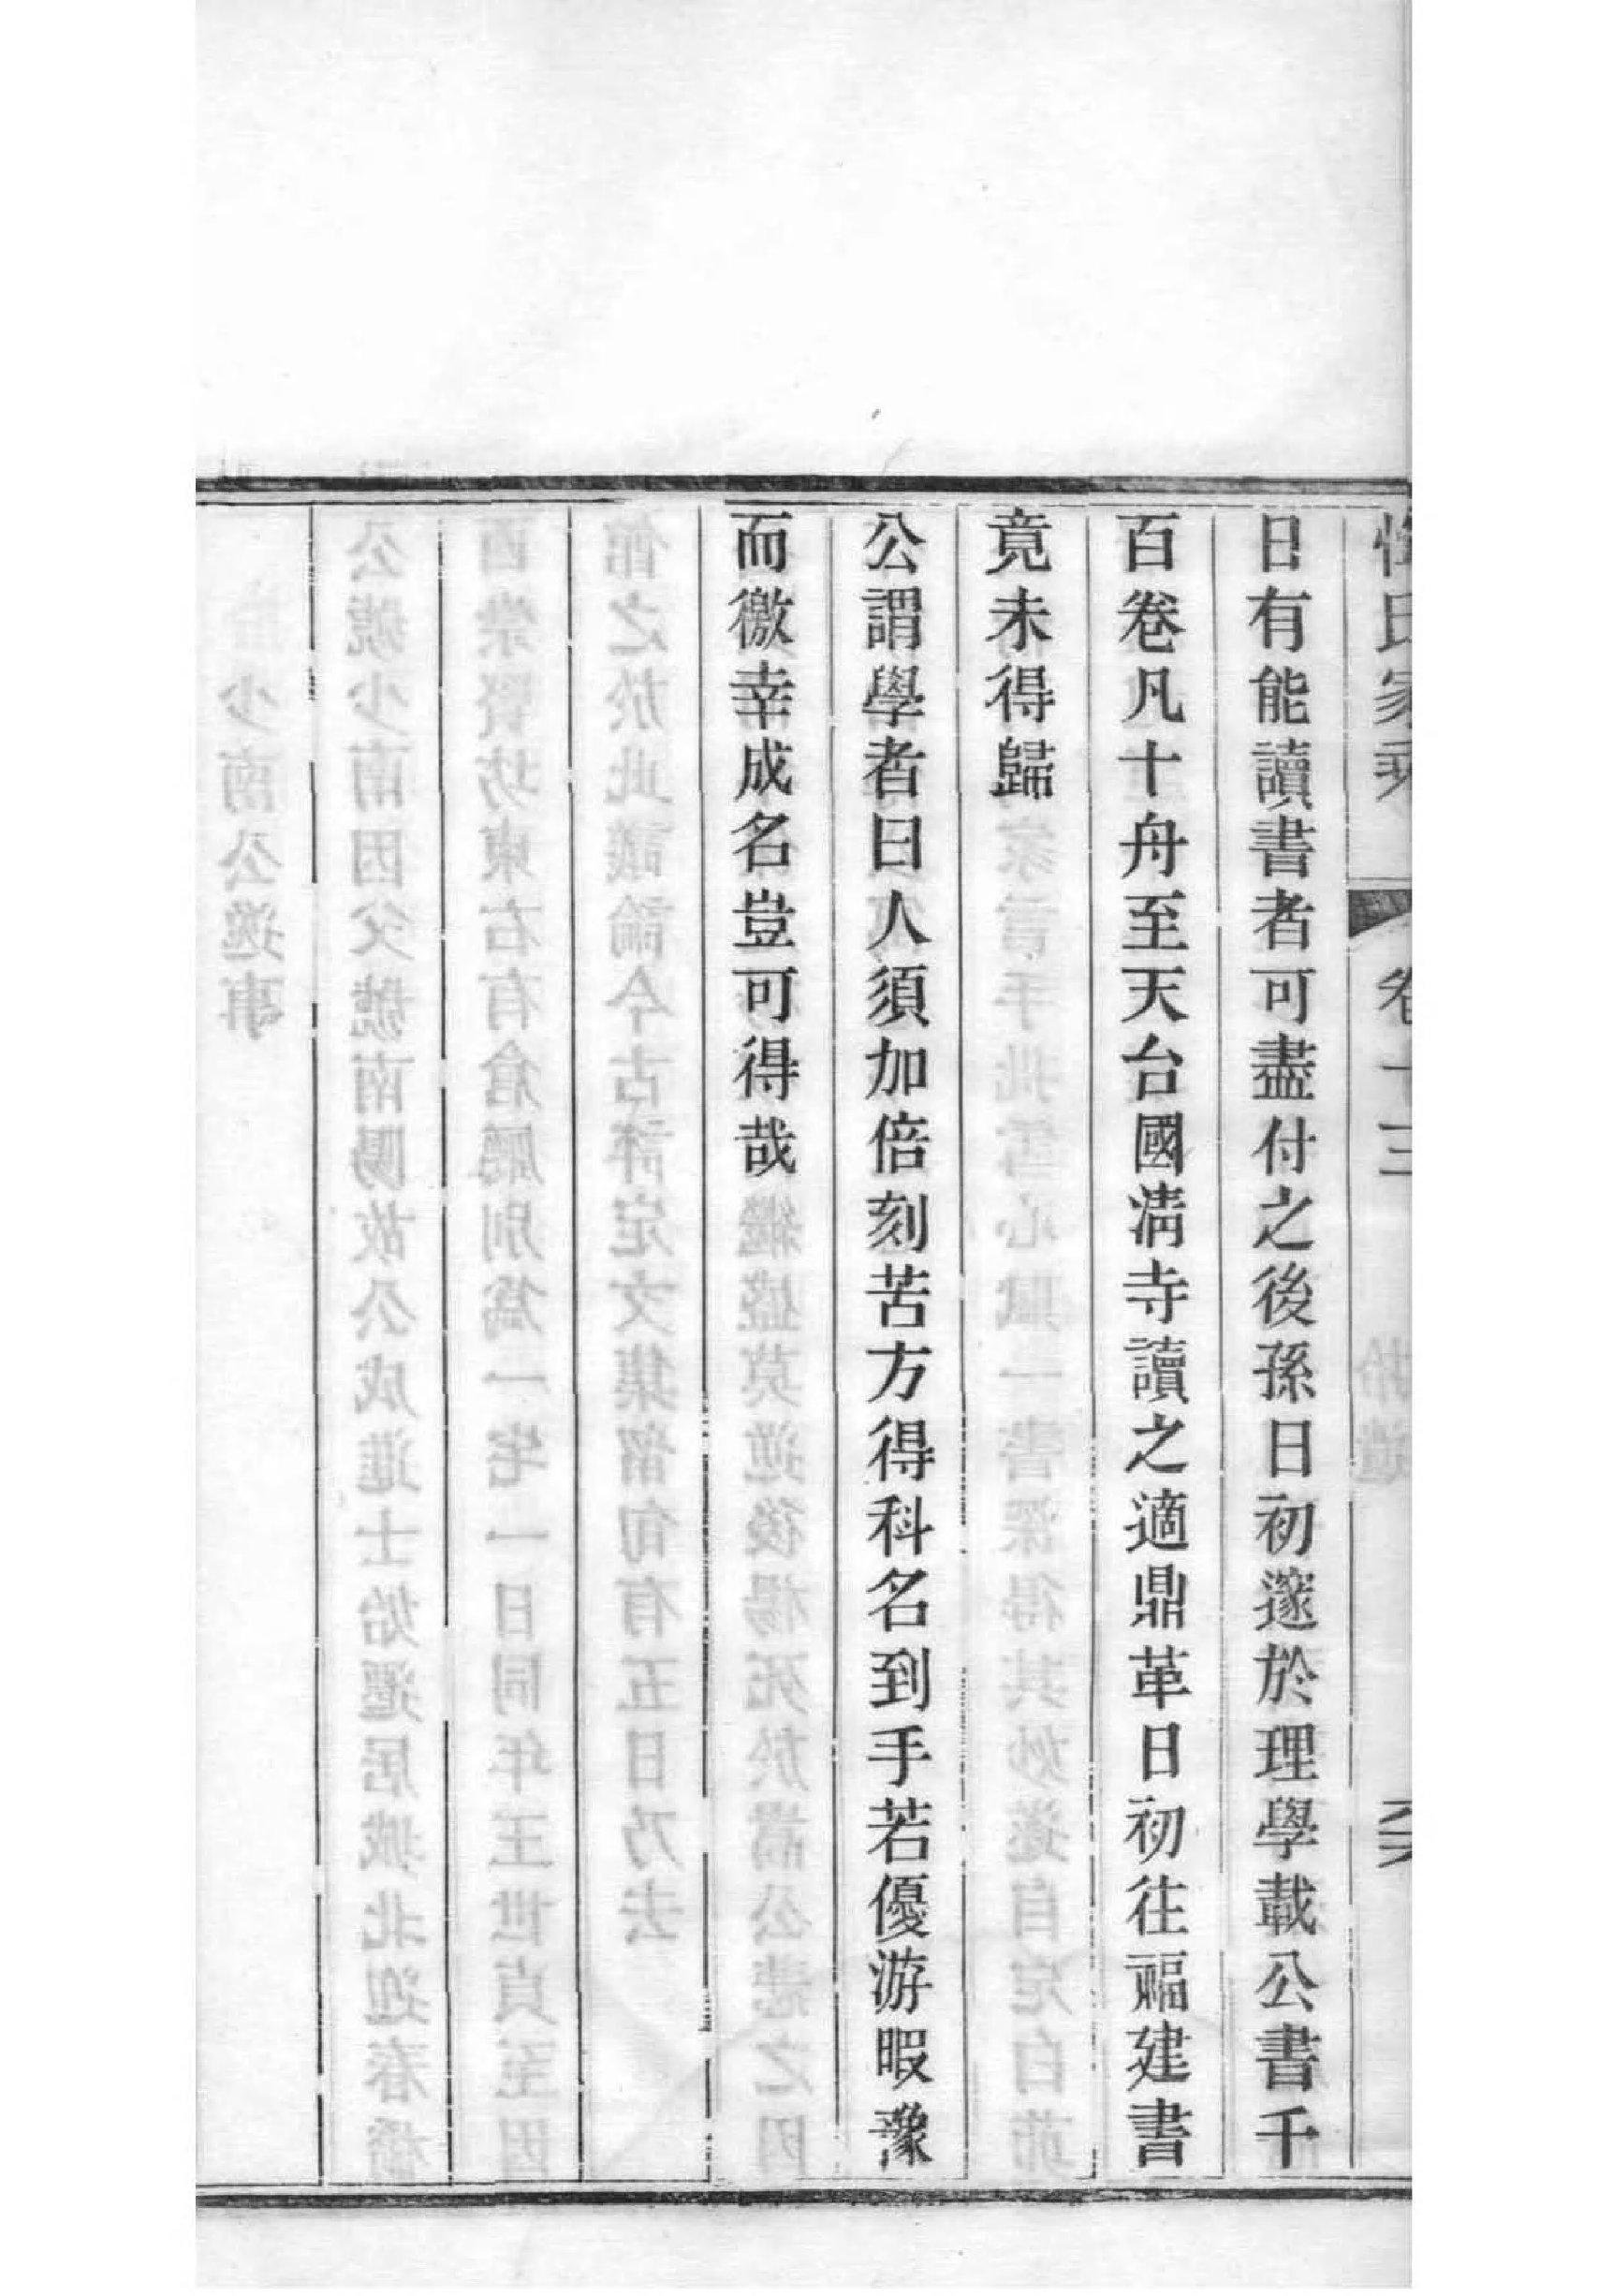 惲氏家乘 卷十三 六
日有能讀書者可盡付之後孫日初邃於理學載公書千
百卷凡十舟至天台國淸寺讀之適鼎革日初往福建書
竟未得歸
公謂學者曰人須加倍刻苦方得科名到手若優游暇豫
而徼幸成名豈可得哉